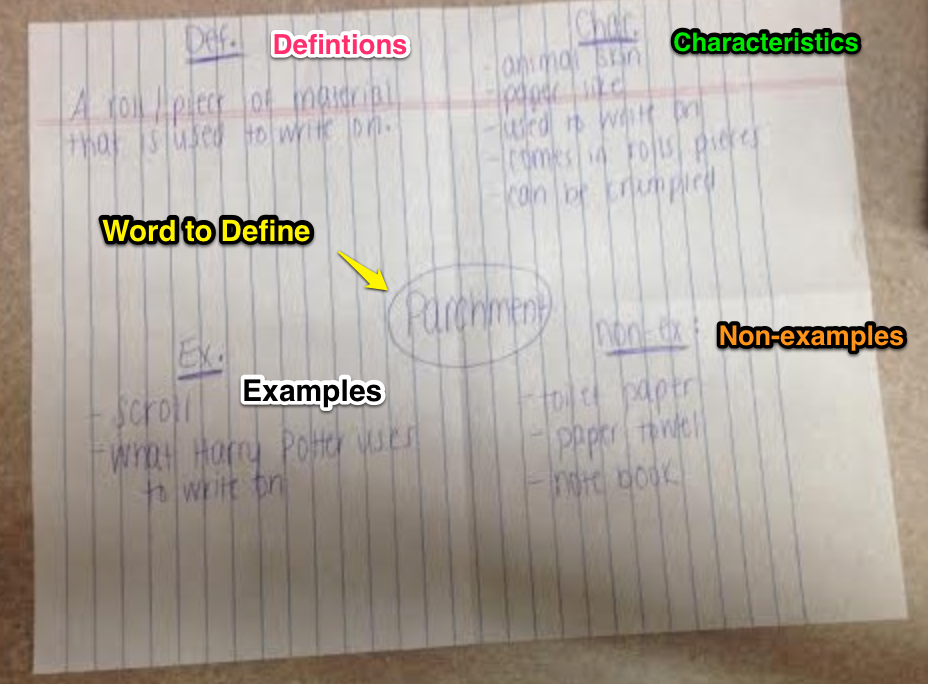 Def.
Defintions
A roll/piece of material
that is used to write on.
Char.
Characteristics
- animal skin
- paper like
- used to write on
- comes in rolls, pieces
- can be crumpled
Word to Define
Parchment
Ex.
Examples
- scroll
- what Harry Potter uses
to write on
non-ex:
Non-examples
- toilet paper
- paper towel
- note book